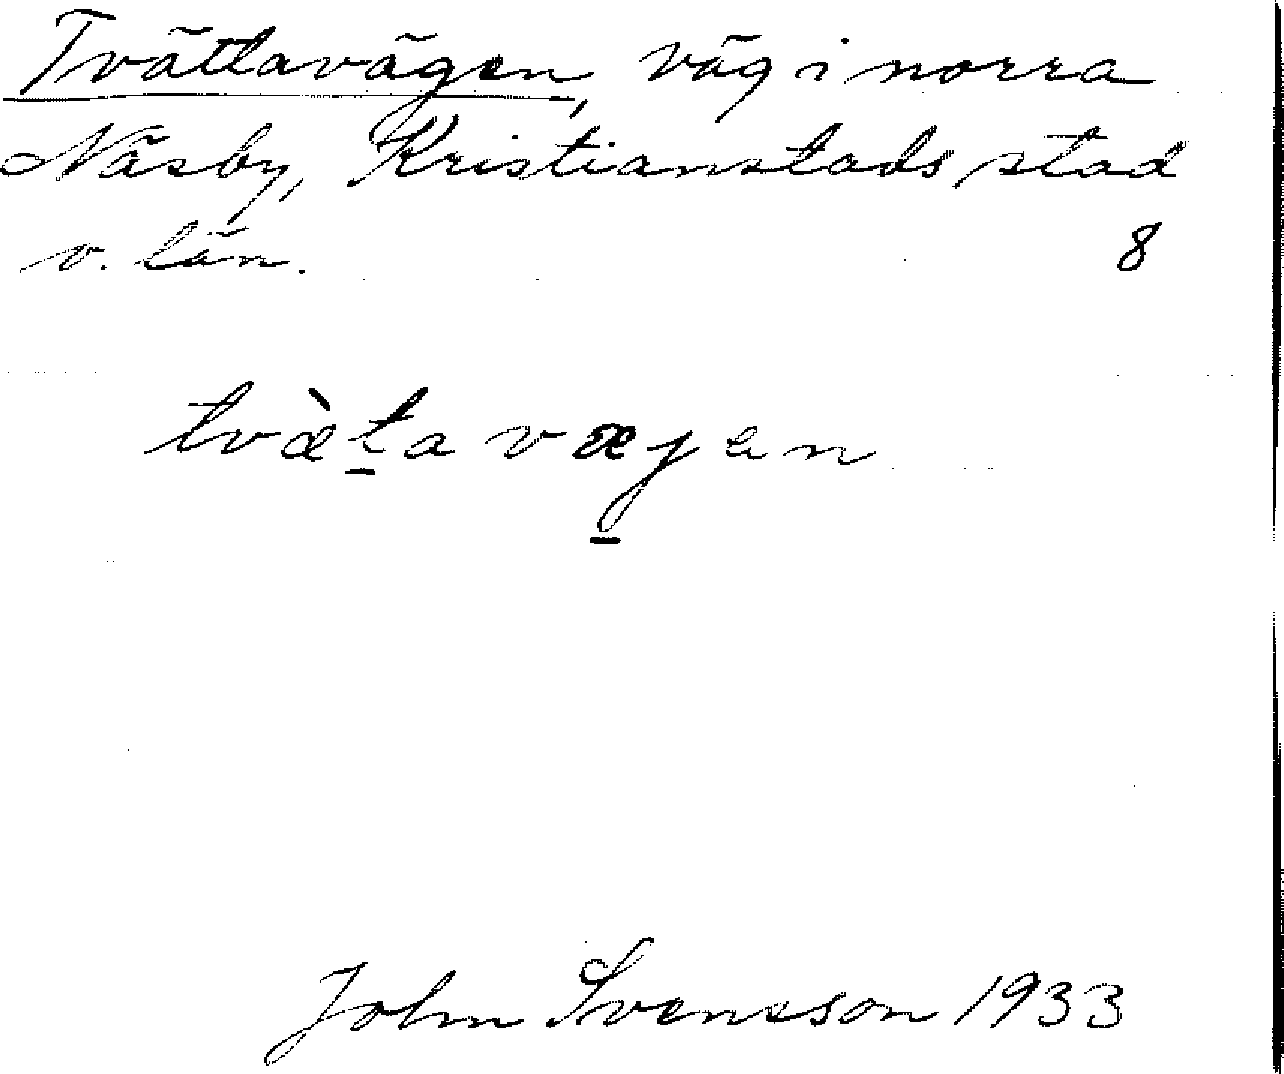 Tvättavägen, väg i norra
Näsby, Kristianstads stad
o. län. 8
tvæ̀t̲avæj̲en
John Svensson 1933